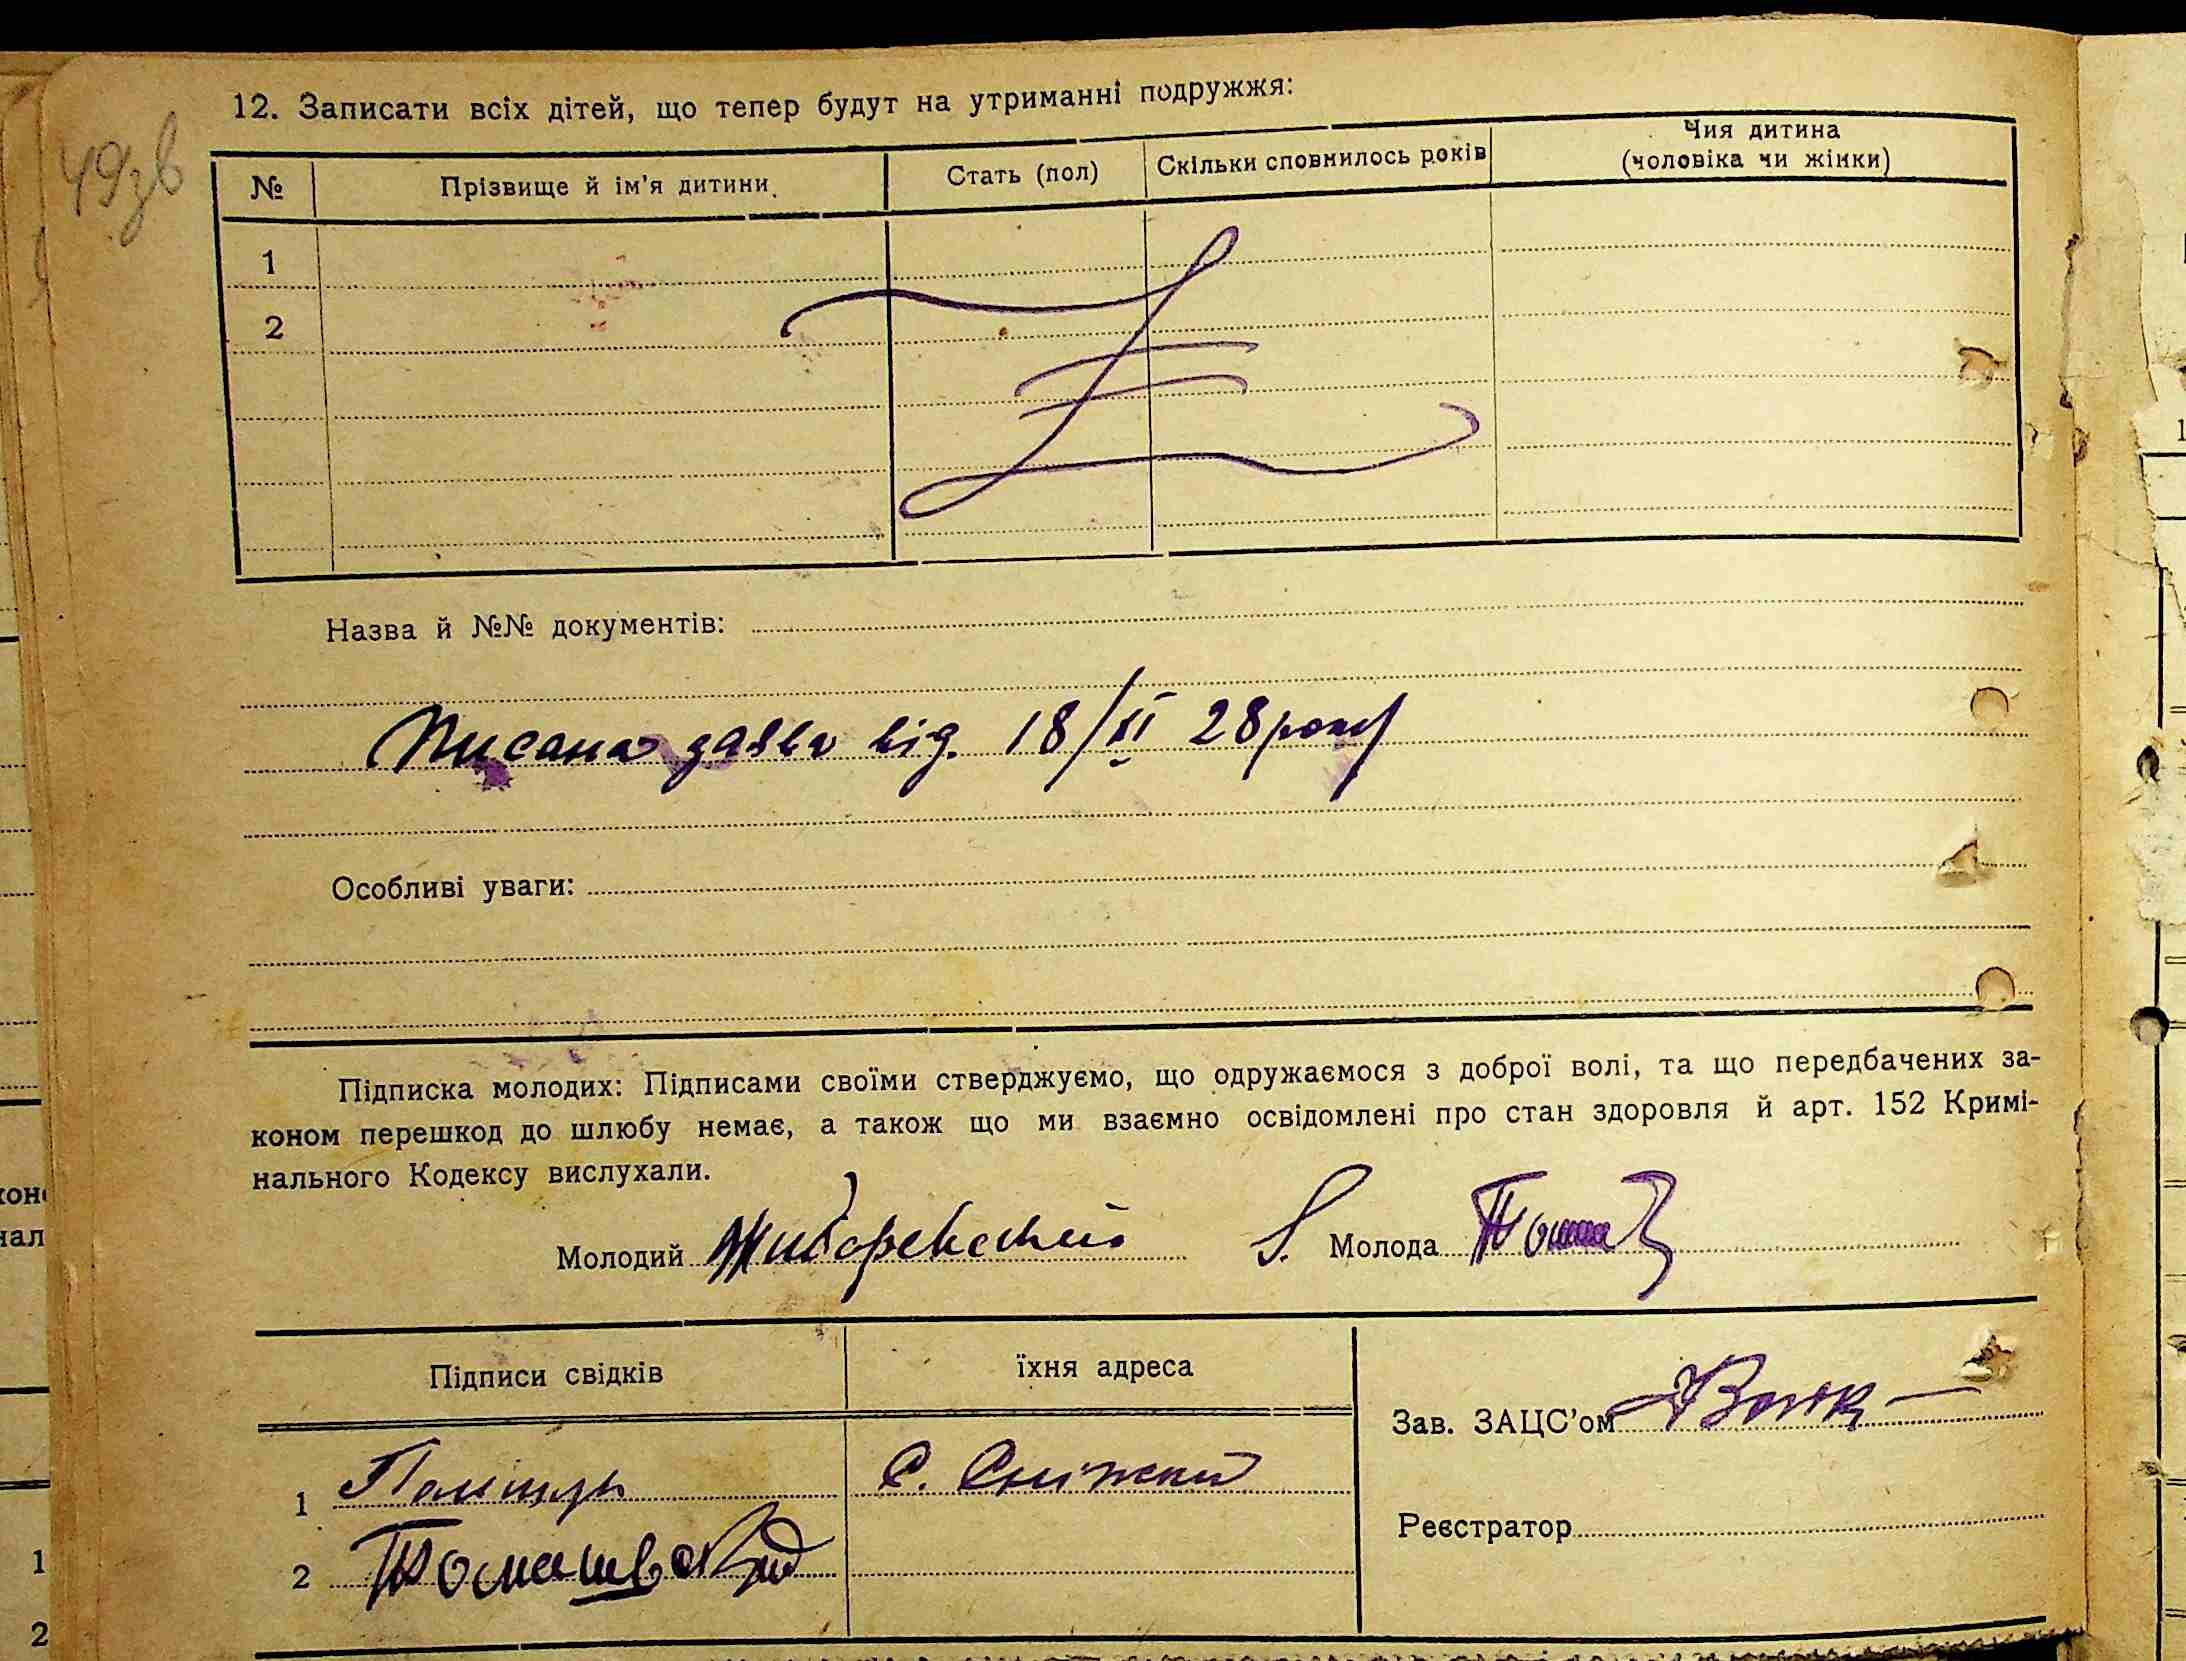 49зв
12. Записати всіх дітей, що тепер будут на утриманні подружжя:
№ Прізвище й ім'я дитини. Стать (пол) Скільки сповнилось років Чия дитина
(чоловіка чи жінки)
1
2
Назва й №№ документів:
Писана заява від. 18/XII 28 року
Особливі уваги:
Підписка молодих: Підписами своїми стверджуємо, що одружаємося з доброї волі, та що передбачених за-
коном перешкод до шлюбу немає, а також що ми взаємно освідомлені про стан здоровля й арт. 152 Кримі-
нального Кодексу вислухали.
Молодий Молода
Підписи свідків їхня адреса
Зав. ЗАЦС'ом
1 С. Сніжки
Реєстратор
2 Томашевский
1
2